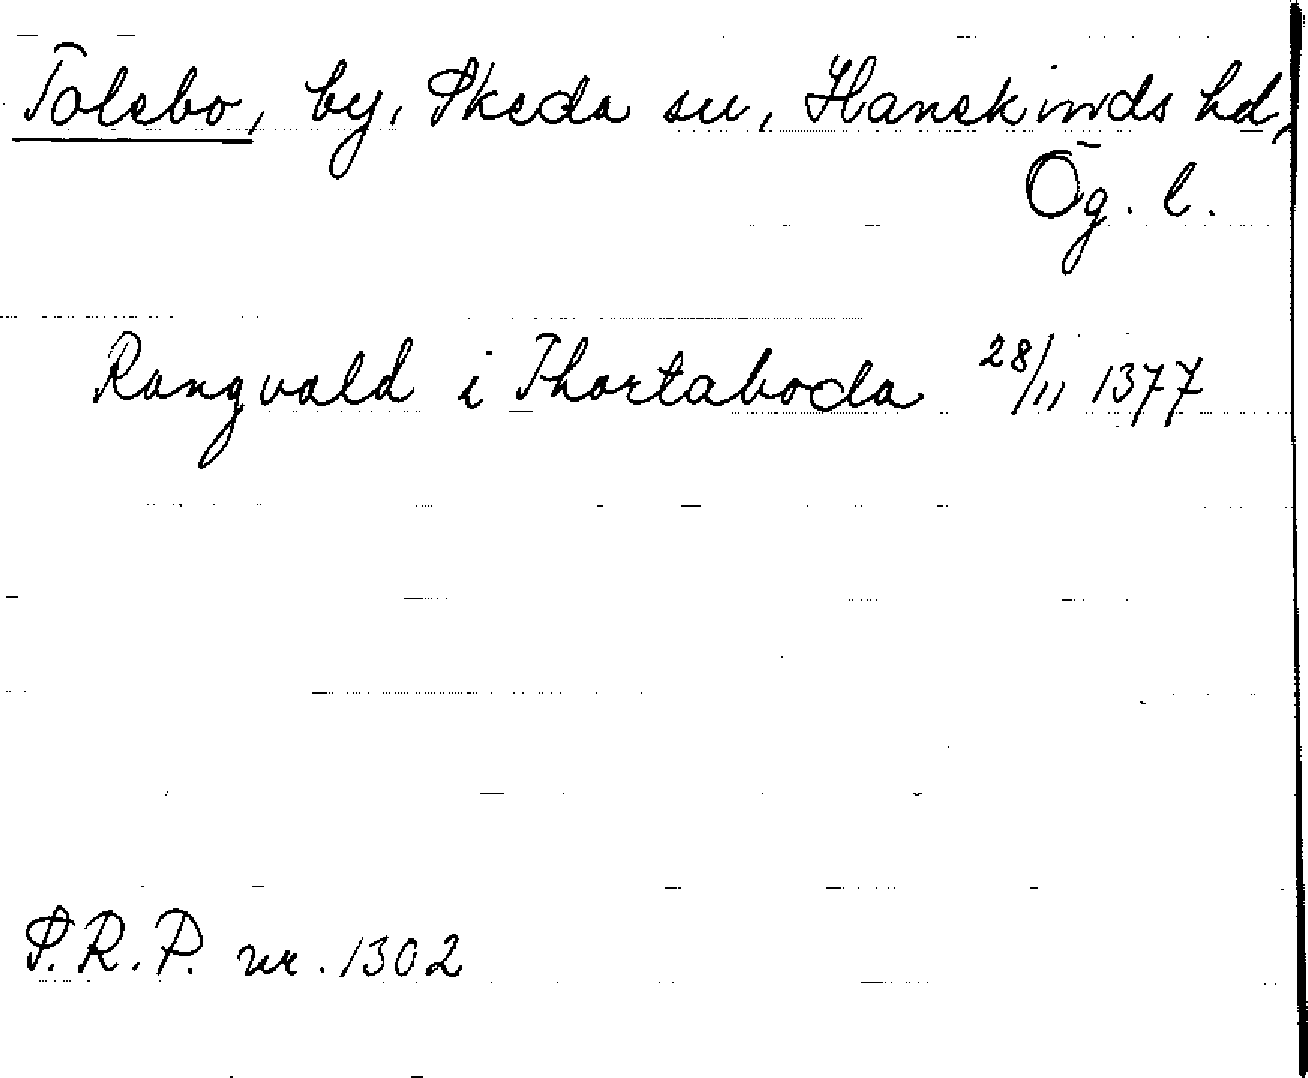 Tolebo, by, Skeda sn, Hanekinds hd,
Ög. l.
Rangvald i Thortaboda 28/11 1377
S.R.P. nr. 1302